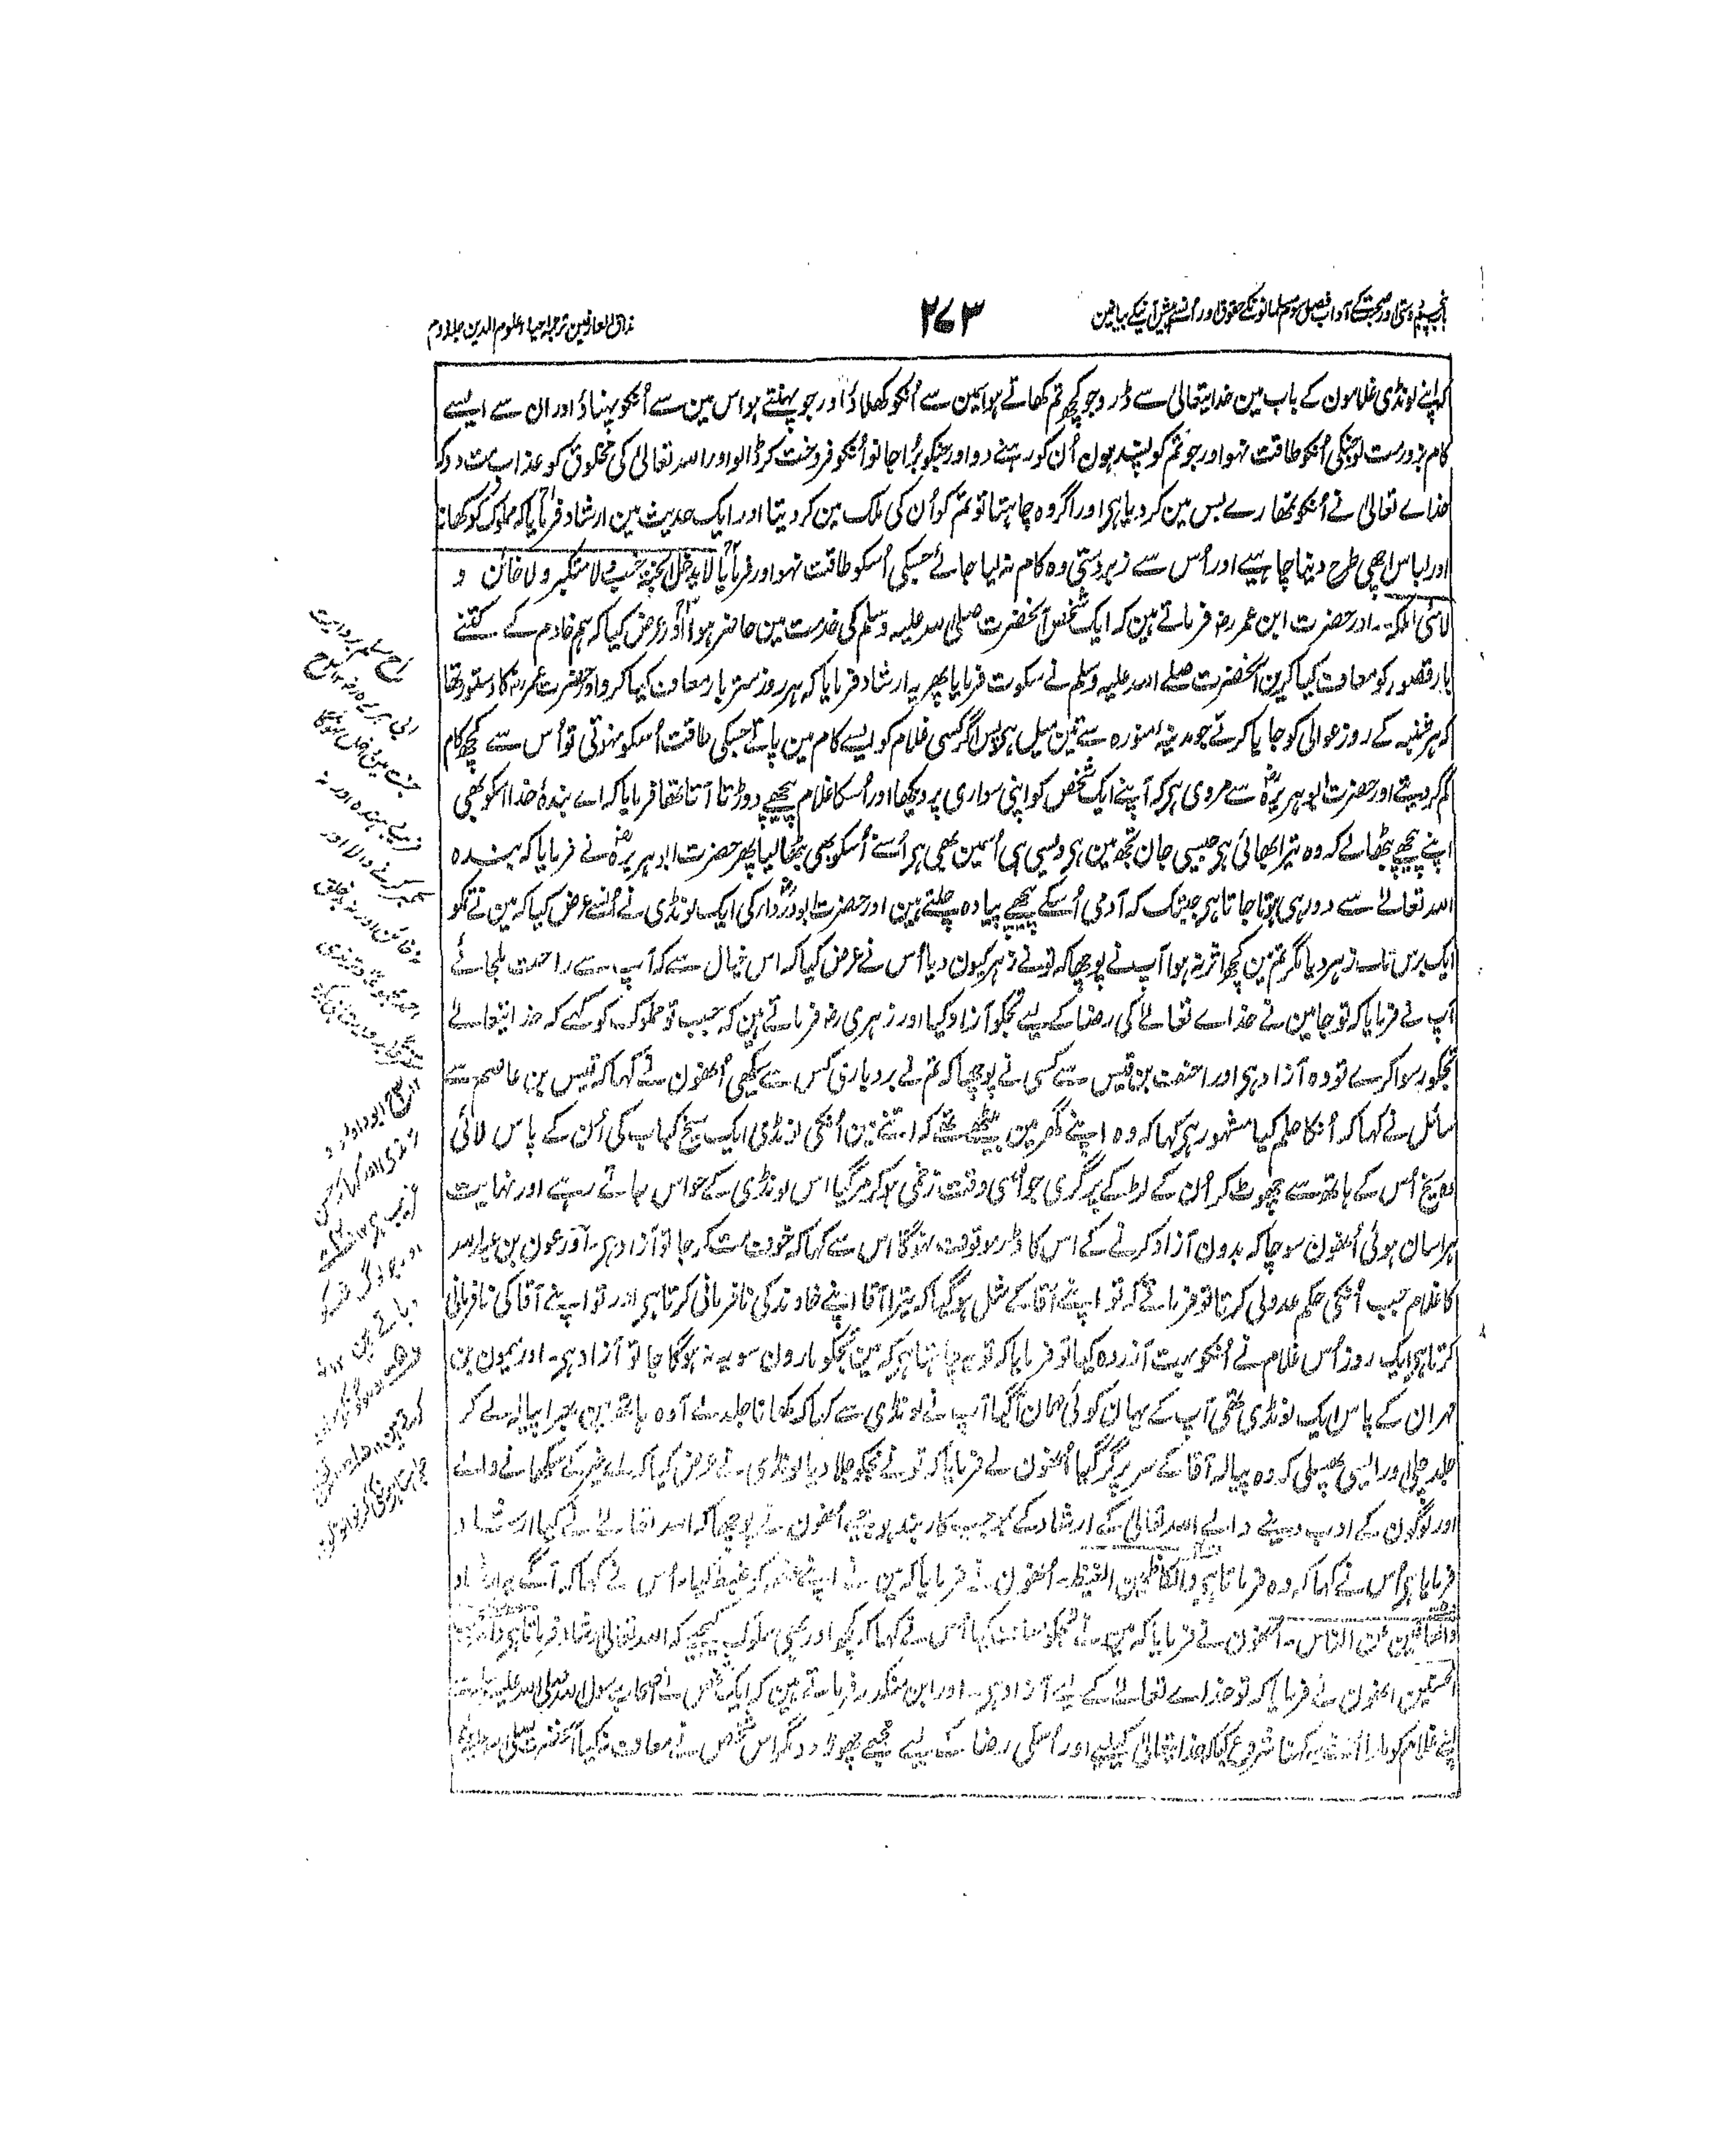 باب پنجم دوستی اور صحبت کے آداب فصل سوم مسلمانونکے حقوق اور اُنسے پیش آنیکے بیانمین
۲۷۳
مذاق العارفین ترجمہ احیاء علوم الدین جلد دوم
کہ اپنے لونڈی غلامون کے باب مین خدایتعالیٰ سے ڈرو جو کچھ تم کھاتے ہو اُسمین سے اُنکو کھلاؤ اور جو پہنتے ہو اس مین سے اُنکو پہناؤ اور ان سے ایسے
کام بزور مت لو جنکی اُنکو طاقت نہو اور جو تم کو پسند ہون اُن کو رہنے دو اور جنکو بُرا جانو اُنکو فروخت کر ڈالو اور اللہ تعالیٰ کی مخلوق کو عذاب مت دو کہ
خداے تعالیٰ نے اُنکو تمھارے بس مین کر دیا ہی اور اگر وہ چاہتا تو تم کو اُن کی ملک مین کر دیتا اور ایک حدیث مین ارشاد فرمایا کہ مملوک کو کھانا
اور لباس اچھی طرح دینا چاہیے اور اُس سے زبردستی وہ کام نہ لیا جائے جسکی اُسکو طاقت نہو اور فرمایا لا یدخل الجنۃ خب ولا متکبر ولا خائن و
لا سیٔ الملکۃ۔ اور حضرت ابن عمر رضہ فرماتے ہین کہ ایک شخص آنحضرت صلی اللہ علیہ وسلم کی خدمت مین حاضر ہوا اور عرض کیا کہ ہم خادم کے کتنے
بار قصور کو معاف کیا کرین آنحضرت صلے اللہ علیہ وسلم نے سکوت فرمایا پھر یہ ارشاد فرمایا کہ ہر روز ستر بار معاف کیا کرو اور حضرت عمر رضہ کا دستور تھا
کہ ہر شنبہ کے روز عوالی کو جایا کرتے جو مدینہ منورہ سے تین میل ہی پس اگر کسی غلام کو ایسے کام مین پاتے جسکی طاقت اُسکو نہوتی تو اُس سے کچھ کام
کم کر دیتے اور حضرت ابو ہریرہؓ سے مروی ہی کہ آپنے ایک شخص کو اپنی سواری پر دیکھا اور اُسکا غلام پیچھے دوڑتا آتا تھا فرمایا کہ اے بندۂ خدا اسکو بھی
اپنے پیچھے بٹھالے کہ وہ تیرا بھائی ہی جیسی جان تجھ مین ہی ویسی ہی اُسمین بھی ہی اُسنے اُسکو بھی بٹھا لیا پھر حضرت ابو ہریرہؓ نے فرمایا کہ بندہ
اللہ تعالےٰ سے دور ہی ہوتا جاتا ہی جبتک کہ آدمی اُسکے پیچھے پیادہ چلتے ہین اور حضرت ابو درداؓ کی ایک لونڈی نے اُنسے عرض کیا کہ مین نے تمکو
ایک برس تک زہر دیا مگر تم مین کچھ اثر نہ ہوا آپ نے پوچھا کہ تونے زہر کیون دیا اُس نے عرض کیا کہ اس خیال سے کہ آپ سے راحت ملجائے
آپ نے فرمایا کہ تو جا مین نے خداے تعالےٰ کی رضا کے لیے تجکو آزاد کیا اور زہری رضہ فرماتے ہین کہ جب تو مملوک کو کہے کہ خدا یتعالےٰ
تجکو رسوا کرے تو وہ آزاد ہی اور احنف بن قیس سے کسی نے پوچھا کہ تم نے بردباری کس سے سیکھی اُنھون نے کہا کہ قیس بن عاصم سے
سائل نے کہا کہ اُنکا حلم کیا مشہور ہی کہا کہ وہ اپنے گھر مین بیٹھے تھے کہ اتنے مین اُنکی لونڈی ایک سیخ کباب کی اُن کے پاس لائی
وہ سیخ اُس کے ہاتھ سے چھوٹ کر اُن کے لڑکے پر گری جو اُسی وقت زخمی ہو کر مر گیا اس لونڈی کے حواس جاتے رہے اور نہایت
ہراسان ہوئی اُنھون سوچا کہ بدون آزاد کرنے کے اس کا ڈر موقوف نہوگا اس سے کہا کہ خوف مت کر جا تو آزاد ہی۔ اور عون بن عبداللہ
کا غلام جب اُنکی حکم عدولی کرتا تو فرماتے کہ تو اپنے آقا کے مثل ہو گیا کہ تیرا آقا اپنے خاوند کی نافرمانی کرتا ہی اور تو اپنے آقا کی نافرمانی
کرتا ہی ایک روز اُس غلام نے اُنکو بہت آزردہ کیا تو فرمایا کہ تو یہ چاہتا ہی کہ مین تجکو مارون سو یہ نہ ہوگا جا تو آزاد ہی۔ اور میمون بن
مہران کے پاس ایک لونڈی تھی آپ کے یہان کوئی مہمان آگیا آپ نے لونڈی سے کہا کہ کھانا جلد لے آ وہ ہاتھ مین بھرا پیالہ لے کر
جلد چلی اور ایسی پھسلی کہ وہ پیالہ آقا کے سر پر گر گیا اُنھون نے فرمایا کہ تونے مجکو جلا دیا لونڈی نے عرض کیا کہ اے خیر کے سکھانے والے
اور لوگون کے ادب دینے والے اللہ تعالیٰ کے ارشاد کے بموجب کاربند ہوجیے اُنھون نے پوچھا کہ اللہ تعالےٰ نے کیا ارشاد
فرمایا ہی اُس نے کہا کہ وہ فرماتا ہی والکاظمین الغیظ۔ اُنھون نے فرمایا کہ مین نے اپنے غصہ کو ضبط کیا۔ اُس نے کہا کہ آگے
والعافین عن الناس۔ اُنھون نے فرمایا کہ مین نے تجکو معاف کیا اُس نے کہا کہ کچھ اور بھی سلوک کیجیے کہ اللہ تعالیٰ ارشاد فرماتا ہی
المحسنین اُنھون نے فرمایا کہ تو خداے تعالےٰ کے لیے آزاد ہی۔ اور ابن منکدر فرماتے ہین کہ ایک شخص نے اصحاب رسول اللہ صلی اللہ علیہ
اپنے غلام کو مارا اُسنے یہ کہنا شروع کیا کہ خدا یتعالیٰ کیلیے اور اُسکی رضا کے لیے مجھے چھوڑ دو مگر اس شخص نے معاف نکیا آنحضرت صلی اللہ علیہ